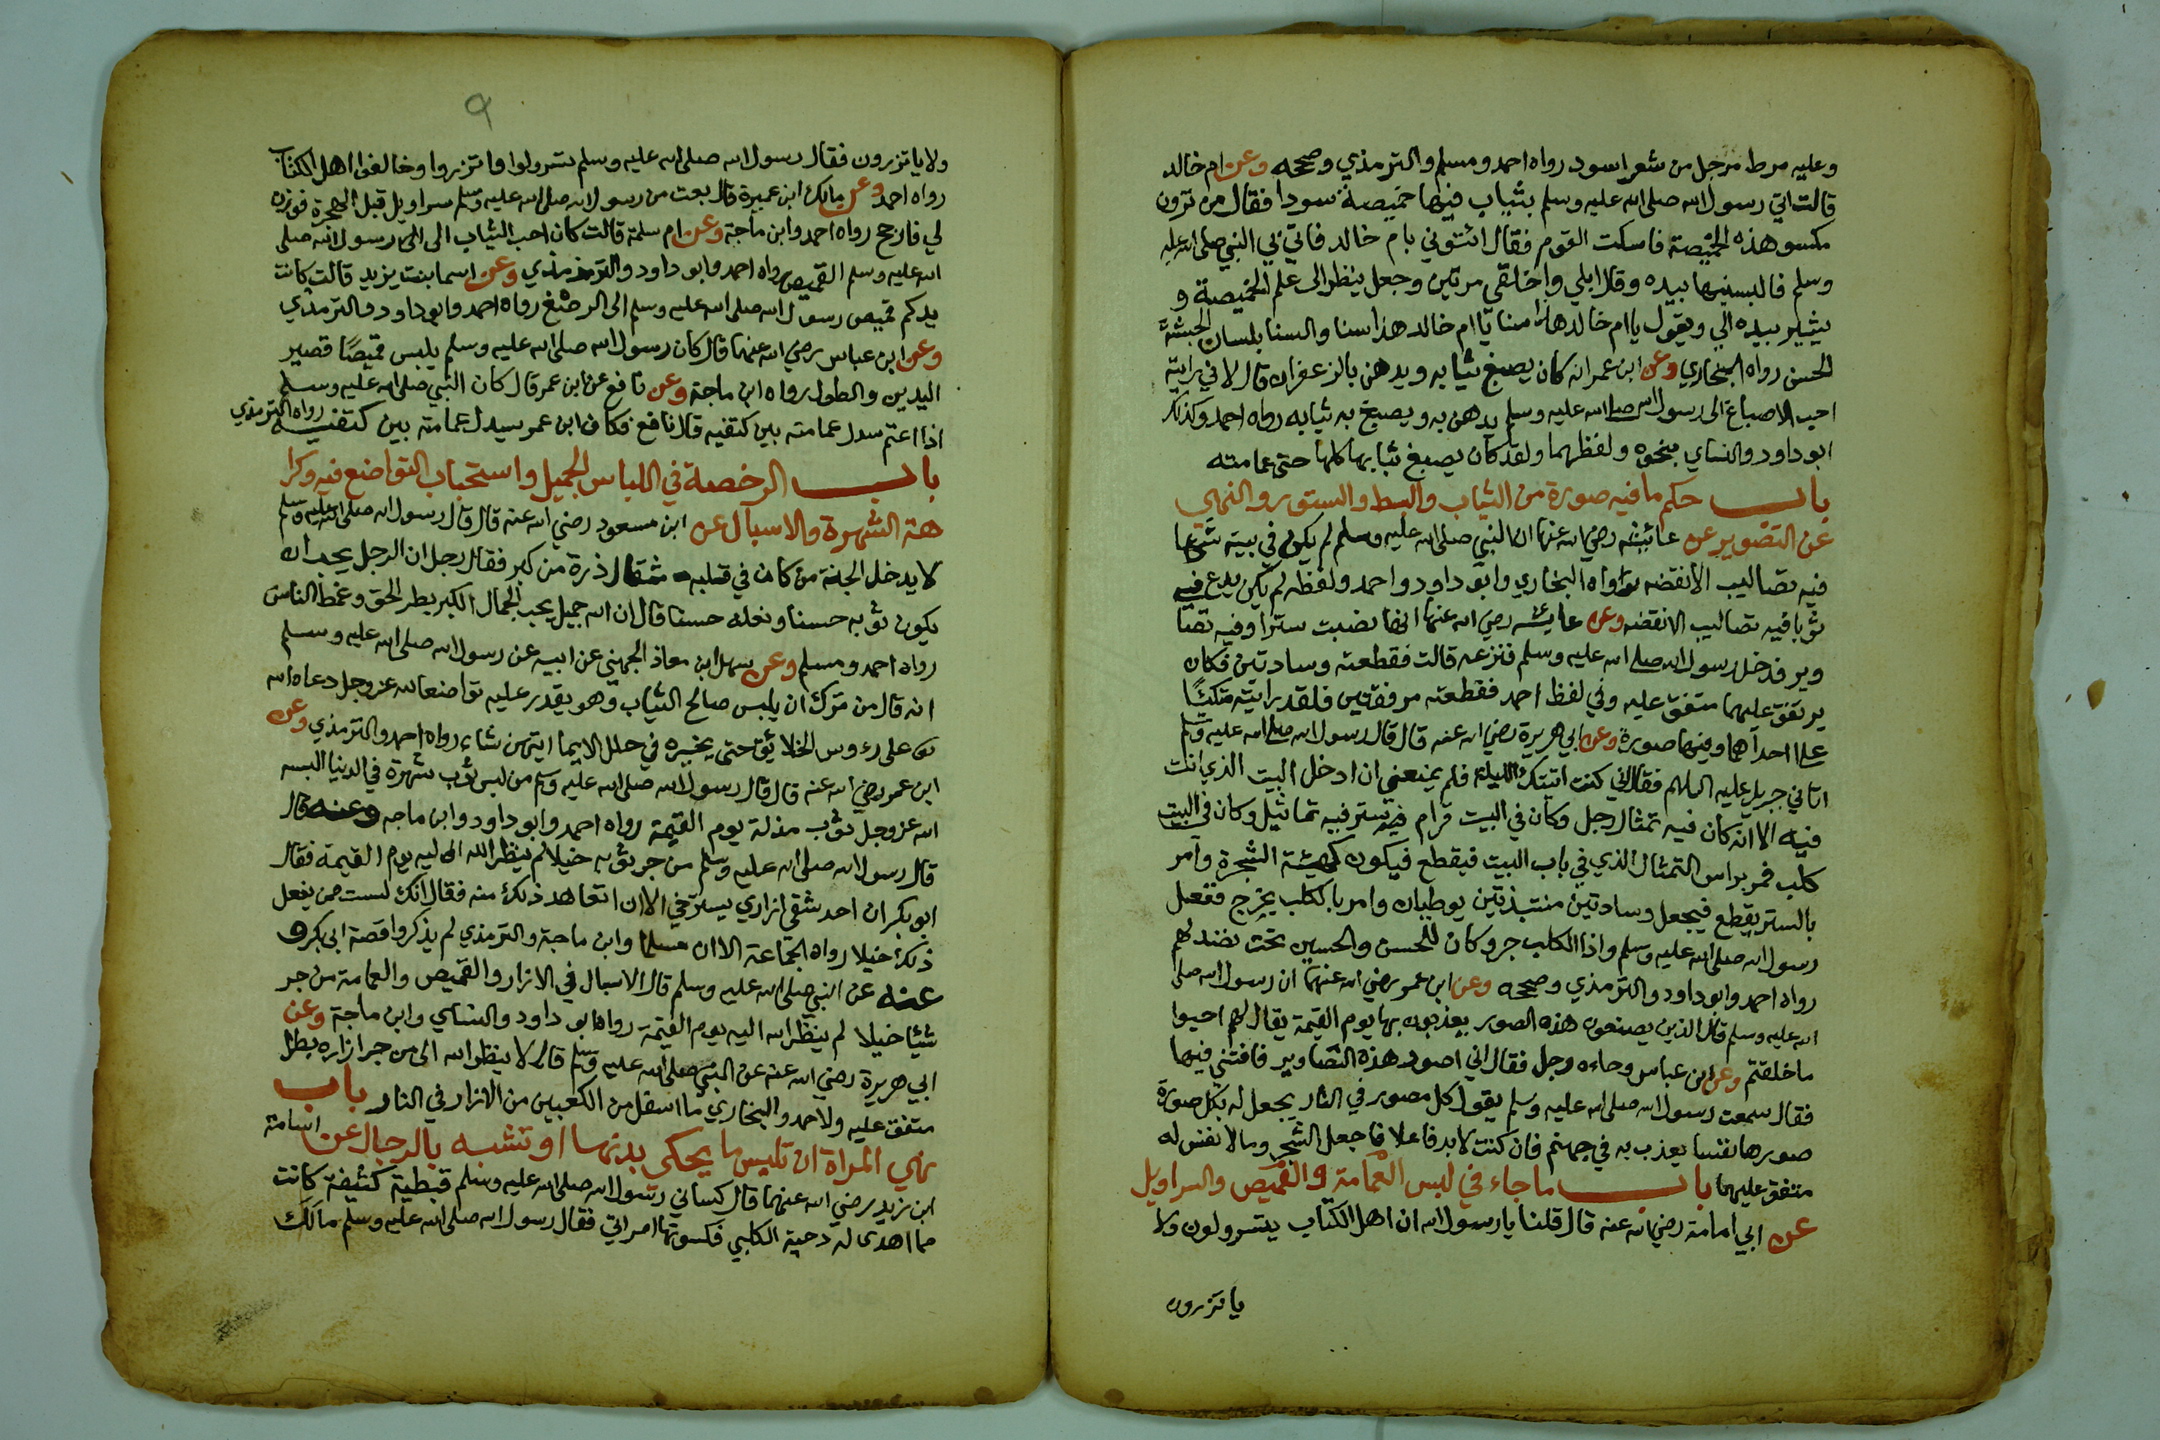 وعليه مرط مرجل من شعر اسود رواه احمد ومسلم والترمذي وصححه وعن ام خالد
قالت اتي رسول الله صلى الله عليه وسلم بثياب فيها خميصة سودا فقال من ترون
نكسو هذه الخميصة فاسكت القوم فقال ائتوني بام خالد فاتي بي النبي صلى الله عليه
وسلم فالبسنيها بيده وقال ابلي واخلقي مرتين وجعل ينظر الى علم الخميصة و
يشير بيده الي ويقول يا ام خالد هذا سنا يا ام خالد هذا سنا والسنا بلسان الحبشة
الحسن رواه البخاري وعن ابن عمر انه كان يصبغ ثيابه ويدهن بالزعفران قال لاني رايته
احب الاصباغ الى رسول الله صلى الله عليه وسلم يدهن به ويصبغ به ثيابه رواه احمد وكذلك
ابو داود والنساي بنحوه ولفظهما ولقد كان يصبغ ثيابها كلها حتى عمامته
باب حكم ما فيه صورة من الثياب والبسط والستور والنهاي
عن التصوير عن عائيشة رضي الله عنها ان النبي صلى الله عليه وسلم لم يكن في بيته شيئا
فيه تصاليب الا نقضه رواه البخاري وابو داود واحمد ولفظه لم يكن يدع فيه
ثوبا فيه تصاليب الا نقضه وعن عائيشه رضي الله عنها انها نصبت سترا وفيه تصا
وير فدخل رسول الله صلى الله عليه وسلم فنزعه قالت فقطعته وسادتين فكان
يرتفق عليهما متفق عليه وفي لفظ احمد فقطعته مرفقتين فلقد رايته متكئا
على احداهما وفيها صورة وعن ابي هريرة رضي الله عنه قال قال رسول الله صلى الله عليه وسلم
اتاني جبريل عليه السلام فقال اني كنت اتيتك الليلة فلم يمنعني ان ادخل البيت الذي انت
فيه الا انه كان فيه تمثال رجل وكان في البيت قرام ستر فيه تماثيل وكان في البيت
كلب فمر براس التمثال الذي في باب البيت فيقطع فيكون كهيئة الشجرة وامر
بالستر يقطع فيجعل وسادتين منتبذتين يوطيان وامر بالكلب يخرج ففعل
رسول الله صلى الله عليه وسلم واذا الكلب جرو كان للحسن والحسين تحت نضد لهم
رواه احمد وابو داود والترمذي وصححه وعن ابن عمر رضي الله عنهما ان رسول الله صلى
الله عليه وسلم قال الذين يصنعون هذه الصور يعذبون بها يوم القيمة يقال لهم احيوا
ما خلقتم وعن ابن عباس وجاءه رجل فقال اني اصور هذه التصاوير فافتني فيها
فقال سمعت رسول الله صلى الله عليه وسلم يقول كل مصور في النار يجعل له بكل صورة
صورها نفسا يعذب به في جهنم فان كنت لا بد فاعلا فاجعل الشجر وما لا نفس له
متفق عليهما باب ما جاء في لبس العمامة والقميص والسراويل
عن ابي امامة رضي الله عنه قال قلنا يا رسول الله ان اهل الكتاب يتسرولون ولا
ياتزرون
٩
ولا ياتزرون فقال رسول الله صلى الله عليه وسلم تسرولوا واتزروا وخالفوا اهل الكتاب
رواه احمد وعن مالك ابن عميرة قال بعت من رسول الله صلى الله عليه وسلم سراويل قبل الهجرة فوزن
لي فارجح رواه احمد وابن ماجة وعن ام سلمة قالت كان احب الثياب الى رسول الله صلى
الله عليه وسلم القميص رواه احمد وابو داود والترمذي وعن اسما بنت يزيد قالت كانت
يدكم قميص رسول الله صلى الله عليه وسلم الى الرصغ رواه احمد وابو داود والترمذي
وعن ابن عباس رضي الله عنهما قال كان رسول الله صلى الله عليه وسلم يلبس قميصا قصير
اليدين والطول رواه ابن ماجة وعن نافع عن ابن عمر قال كان النبي صلى الله عليه وسلم
اذا اعتم سدل عمامته بين كتفيه قال نافع فكان ابن عمر يسدل عمامته بين كتفيه رواه الترمذي
باب الرخصة في اللباس الجميل واستحباب التواضع فيه وكرا
هة الشهرة والاسبال عن ابن مسعود رضي الله عنه قال قال رسول الله صلى الله عليه وسلم
لا يدخل الجنة من كان في قلبه مثقال ذرة من كبر فقال رجل ان الرجل يحب ان
يكون ثوبه حسنا ونعله حسنا قال ان الله جميل يحب الجمال الكبر بطر الحق وغمط الناس
رواه احمد ومسلم وعن سهل ابن معاذ الجهني عن ابيه عن رسول الله صلى الله عليه وسلم
انه قال من ترك ان يلبس صالح الثياب وهو يقدر عليه تواضعا لله عز وجل دعاه الله
على رءوس الخلائق حتى يخيره في حلل الايمان ايتهن شاء رواه احمد والترمذي وعن
ابن عمر رضي الله عنه قال قال رسول الله صلى الله عليه وسلم من لبس ثوب شهرة في الدنيا البسه
الله عز وجل ثوب مذلة يوم القيمة رواه احمد وابو داود وابن ماجه وعنه قال
قال رسول الله صلى الله عليه وسلم من جر ثوبه خيلا لم ينظر الله اليه يوم القيمة فقال
ابو بكر ان احد شقي ازاري يسترخي الا ان اتعاهد ذلك منه فقال انك لست ممن يفعل
ذلك خيلا رواه الجماعة الا ان مسلما وابن ماجة والترمذي لم يذكروا قصة ابي بكر و
عنه عن النبي صلى الله عليه وسلم قال الاسبال في الازار والقميص والعمامة من جر
شيئا خيلا لم ينظر الله اليه يوم القيمة رواه ابو داود والنساي وابن ماجة وعن
ابي هريرة رضي الله عنه عن النبي صلى الله عليه وسلم قال لا ينظر الله الى من جر ازاره بطرا
متفق عليه ولاحمد والبخاري ما اسفل من الكعبين من الازار في النار باب
نهي المراة ان تلبس ما يحكي بدنها او تشبه بالرجال عن اسامة
ابن زيد رضي الله عنهما قال كساني رسول الله صلى الله عليه وسلم قبطية كثيفة كانت
مما اهدى له دحية الكلبي فكسوتها امراتي فقال رسول الله صلى الله عليه وسلم مالك